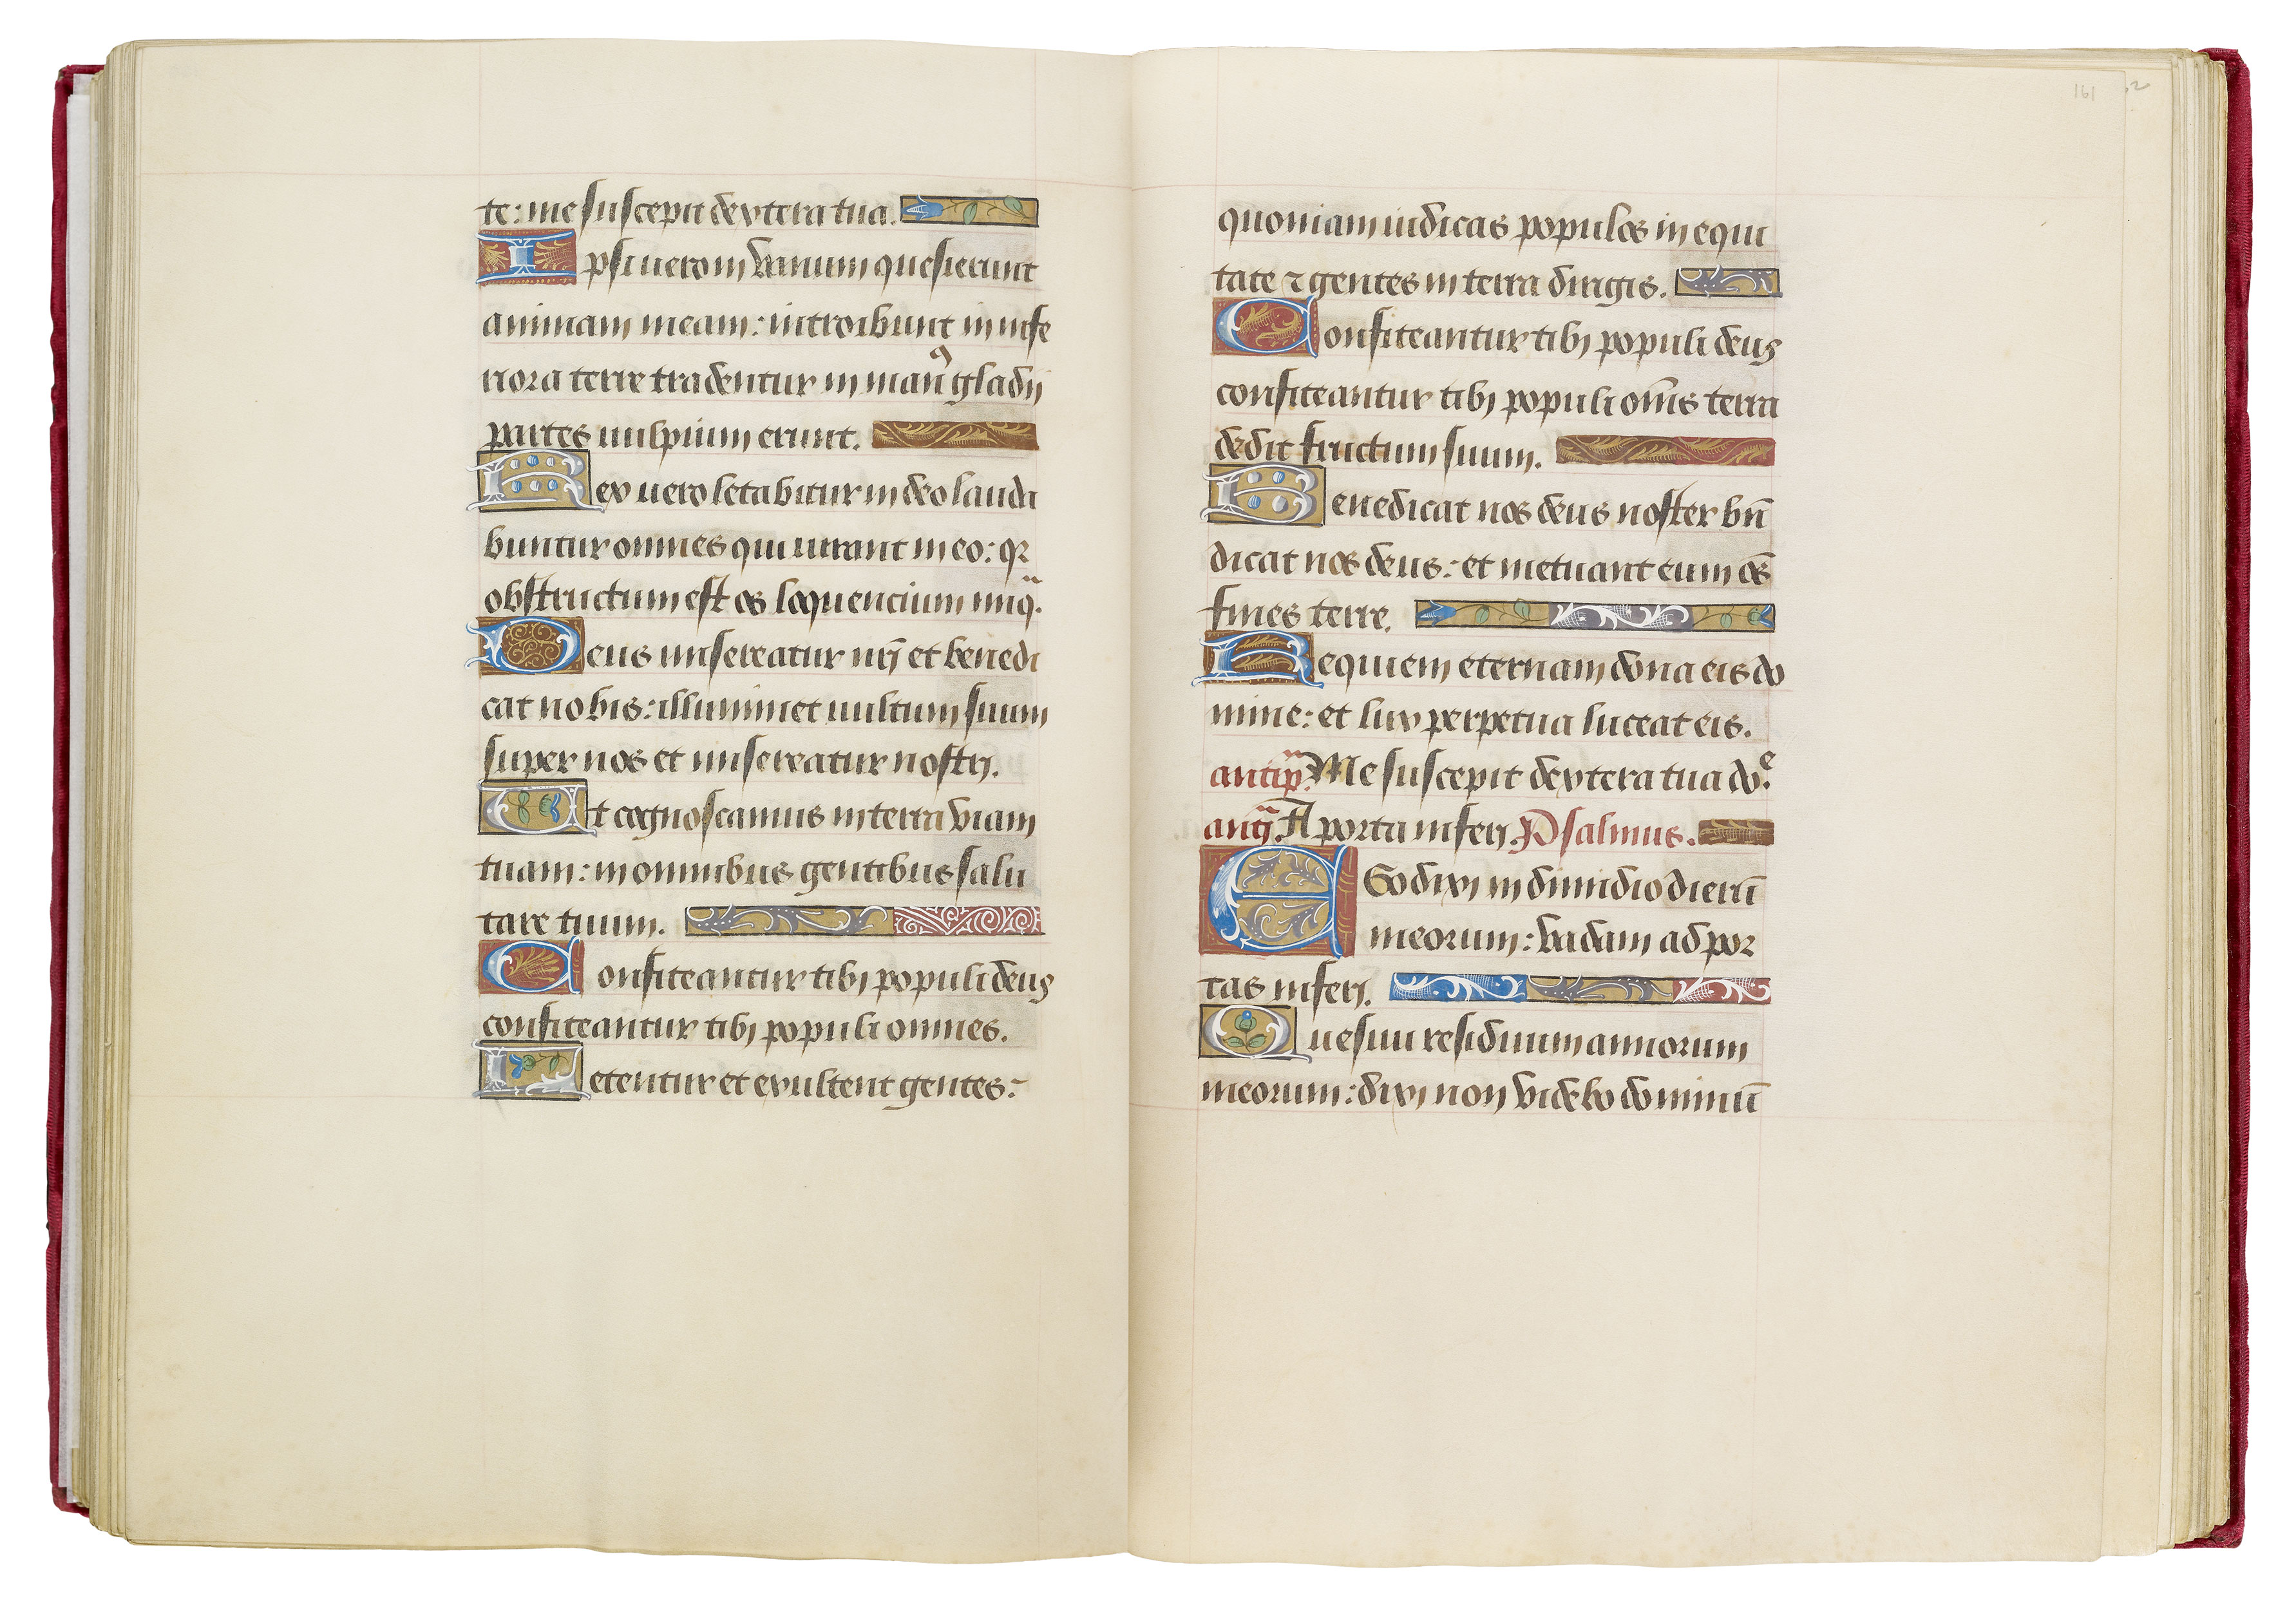 te: me suscepit dextera tua.
Ipsi vero in vanum quesierunt
animam meam: introibunt in infe
riora terre tradentur in man9 gladij
partes vulpium erunt.
Rex vero letabitur in deo lauda
buntur omnes qui iurant in eo: qr
obstructum est os loquencium iniq̃.
Deus misereatur nr̃i et benedi
cat nobis: illuminet vultum suum
super nos et misereatur nostri.
Ut cognoscamus in terra viam
tuam: in omnibus gentibus salu
tare tuum.
Confiteantur tibi populi deus
confiteantur tibi populi omnes.
Letentur et exultent gentes:
161
quoniam iudicas populos in equi
tate ⁊ gentes in terra dirigis.
Confiteantur tibi populi deus
confiteantur tibi populi om̃s terra
dedit fructum suum.
Benedicat nos deus noster bn̄
dicat nos deus: et metuant eum oẽs
fines terre.
Requiem eternam dona eis do
mine: et lux perpetua luceat eis.
antiph̃. Me suscepit dextera tua doᵉ.
anã. A porta inferi. Psalmus.
EGo dixi in dimidio dierū
meorum: vadam ad por
tas inferi.
Quesiui residuum annorum
meorum: dixi non videbo dominū